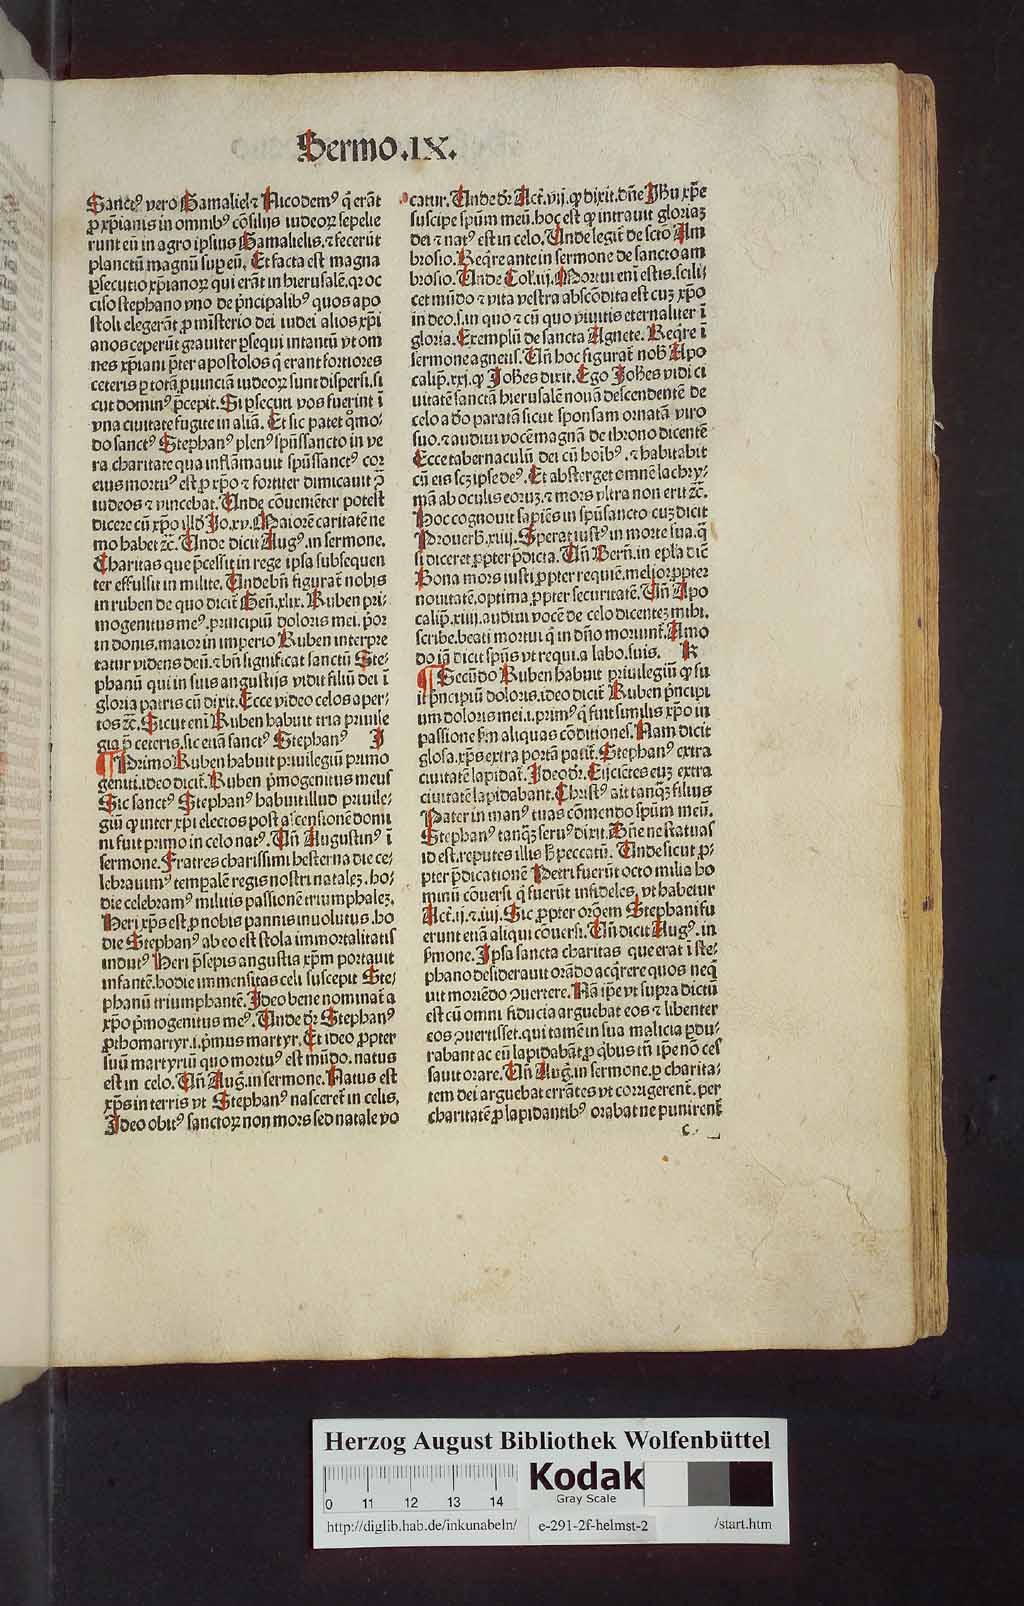 Sermo.IX.
Sanctꝰ vero Gamaliel ⁊ Nicodemꝰ q̄ erāt
ꝓ xp̄ianis in omnibꝰ cōsilijs iudeoꝝ sepelie
runt eū in agro ipsius Gamalielis, ⁊ fecerūt
planctū magnū suꝑ eū. Et facta est magna
ꝑsecutio xp̄ianoꝝ qui erāt in hierusalē, qꝛ oc
ciso stephano vno de p̄ncipalibꝰ quos apo
stoli elegerāt ꝓ misterio dei iudei alios xp̄i
anos ceperūt grauiter ꝑsequi intantū vt om
nes xp̄iani p̄ter apostolos q̄ erant fortiores
ceteris ꝑ totā ꝓuinciā iudeoꝝ sunt dispersi, si
cut dominꝰ p̄cepit. Si ꝑsecuti vos fuerint ī
vna ciuitate fugite in aliā. Et sic patet q̊mo-
do sanctꝰ Stephanꝰ plenꝰ spūssancto in ve
ra charitate qua inflāmauit spūssanctꝰ cor
eius mortuꝰ est ꝓ xp̄o ⁊ fortiter dimicauit ꝯ̄
iudeos ⁊ vincebat. Unde cōueniēter potest
dicere cū xp̄o illd̄ Jo.xv. Maiorē caritatē ne
mo habet ⁊c̄. Unde dicit Augꝰ. in sermone.
Charitas que p̄cessit in rege ipsa subsequen
ter effulsit in milite. Unde bn̄ figurat̄ nobis
in ruben de quo dicit̄ Gen̄.xlix. Ruben pri-
mogenitus meꝰ. principiū doloris mei. p̄or
in donis, maior in imperio Ruben interpre
tatur videns deū. ⁊ bn̄ significat sanctū Ste-
phanū qui in suis angustijs vidit filiū dei ī
gloria patris cū dixit. Ecce video celos aper-
tos ⁊c̄. Sicut eni Ruben habuit tria priuile
gia p̄ ceteris, sic etiā sanctꝰ Stephanꝰ J
¶ Primo Ruben habuit priuilegiū primo
geniti. ideo dicit̄. Ruben p̄mogenitus meus
Sic sanctꝰ Stephanꝰ habuit illud priuile-
giū ꝙ inter xp̄i electos post ascensionē domi
ni fuit primo in celo natꝰ. Un̄ Augustinꝰ ī
sermone. Fratres charissimi hesterna die ce-
lebrauimꝰ tempalē regis nostri natalēꝫ. ho-
die celebramꝰ militis passionē triumphalēꝫ.
Heri xp̄s est ꝓ nobis pannis inuolutus, ho
die Stephanꝰ ab eo est stola immortalitatis
indutꝰ Heri p̄sepis angustia xp̄m portauit
infantē. hodie immensitas celi suscepit Ste-
phanū triumphantē. Ideo bene nominat̄ a
xp̄o p̄mogenitus meꝰ. Unde dr̄ Stephanꝰ
ꝓthomartyr. i. p̄mus martyr. Et ideo ꝓpter
suū martyriū quo mortuꝰ est mūdo. natus
est in celo. Un̄ Auḡ. in sermone. Natus est
xp̄s in terris vt Stephanꝰ nasceret̄ in celis,
Ideo obitꝰ sanctoꝝ non mors sed natale vo
catur. Unde dr̄ Act̄.vij. ꝙ dixit. dn̄e Jh̄u xp̄e
suscipe spūm meū. hoc est ꝙ intrauit gloriaꝫ
dei ⁊ natꝰ est in celo. Unde legit̄ de scto Am
brosio. Req̄re ante in sermone de sancto am
brosio. Unde Col̄.iij. Mortui eni estis. scili-
cet mūdo ⁊ vita vestra abscōdita est cuꝫ xp̄o
in deo. s. in quo ⁊ cū quo viuitis eternaliter ī
gloria. Exemplū de sancta Agnete. Req̄re ī
sermone agneus. Un̄ hoc figurat̄ nob̄ Apo
calip̄.xxj. ꝙ Joh̄es dixit. Ego Joh̄es vidi ci
uitatē sanctā hierusalē nouā descendentē de
celo a do paratā sicut sponsam ornatā viro
suo. ⁊ audiui vocē magnā de throno dicentē
Ecce tabernaculū dei cū hoībꝰ. ⁊ habitabit
cū eis scꝫ ipse deꝰ. Et absterget omnē lachry-
mā ab oculis eoruꝫ. ⁊ mors vltra non erit ⁊c̄.
Hoc cognouit sapiēs in spūsancto cuꝫ dicit
Prouerb̄.xiiij. Sperat iustꝰ in morte sua. q̄
si diceret ꝓpter p̄dicta. Un̄ Bern̄. in epl̄a dic̄
Bona mors iusti ꝓpter requiē. melior ꝓpter
nouitatē. optima ꝓpter securitatē. Un̄ Apo
calip̄.xiiij. audiui vocē de celo dicenteꝫ mihi.
scribe. beati mortui q̄ in dn̄o moriunt̄. Amo
do iā dicit spūs vt requi. a labo. suis. K
¶ Secūdo Ruben habuit priuilegiū ꝙ fu
it p̄ncipiū doloris. ideo dicit̄ Ruben p̄ncipi
um doloris mei. i. primꝰ q̄ fuit similis xp̄o in
passione ẜm aliquas cōditiones. Nam dicit
glosa. xp̄s extra portā patit̄. Stephanꝰ extra
ciuitatē lapidat̄. Ideo dr̄. Eijciētes euꝫ extra
ciuitatē lapidabant. Christꝰ ait tanqꝫ filius
Pater in manꝰ tuas cōmendo spūm meū.
Stephanꝰ tanqꝫ seruꝰ dixit. Dn̄e ne statuas
id est, reputes illis h̄ peccatū. Unde sicut ꝓ-
pter p̄dicationē Petri fuerūt octo milia ho
minū cōuersi q̄ fuerūt infideles, vt habetur
Act̄.ij. ⁊.iiij. Sic ꝓpter orōem Stephani fu
erunt etiā aliqui cōuersi. Un̄ dicit Augꝰ. in
ẜmone. Ipsa sancta charitas que erat ī ste-
phano desiderauit orādo acq̄rere quos neq̄
uit moriēdo ꝯuertere. Nā ip̄e vt supra dictū
est cū omni fiducia arguebat eos ⁊ libenter
eos ꝯuertisset. qui tamē in sua malicia ꝑdu-
rabant ac eū lapidabāt ꝓ q̇bus tn̄ ip̄e nō ces
sauit orare. Un̄ Auḡ. in sermone. ꝑ charita-
tem dei arguebat errātes vt corrigerent̄. per
charitatē ꝓ lapidantibꝰ orabat ne punirent̄
Herzog August Bibliothek Wolfenbüttel
0 11 12 13 14
Kodak
Gray Scale
http://diglib.hab.de/inkunabeln/ e-291-2f-helmst-2 /start.htm